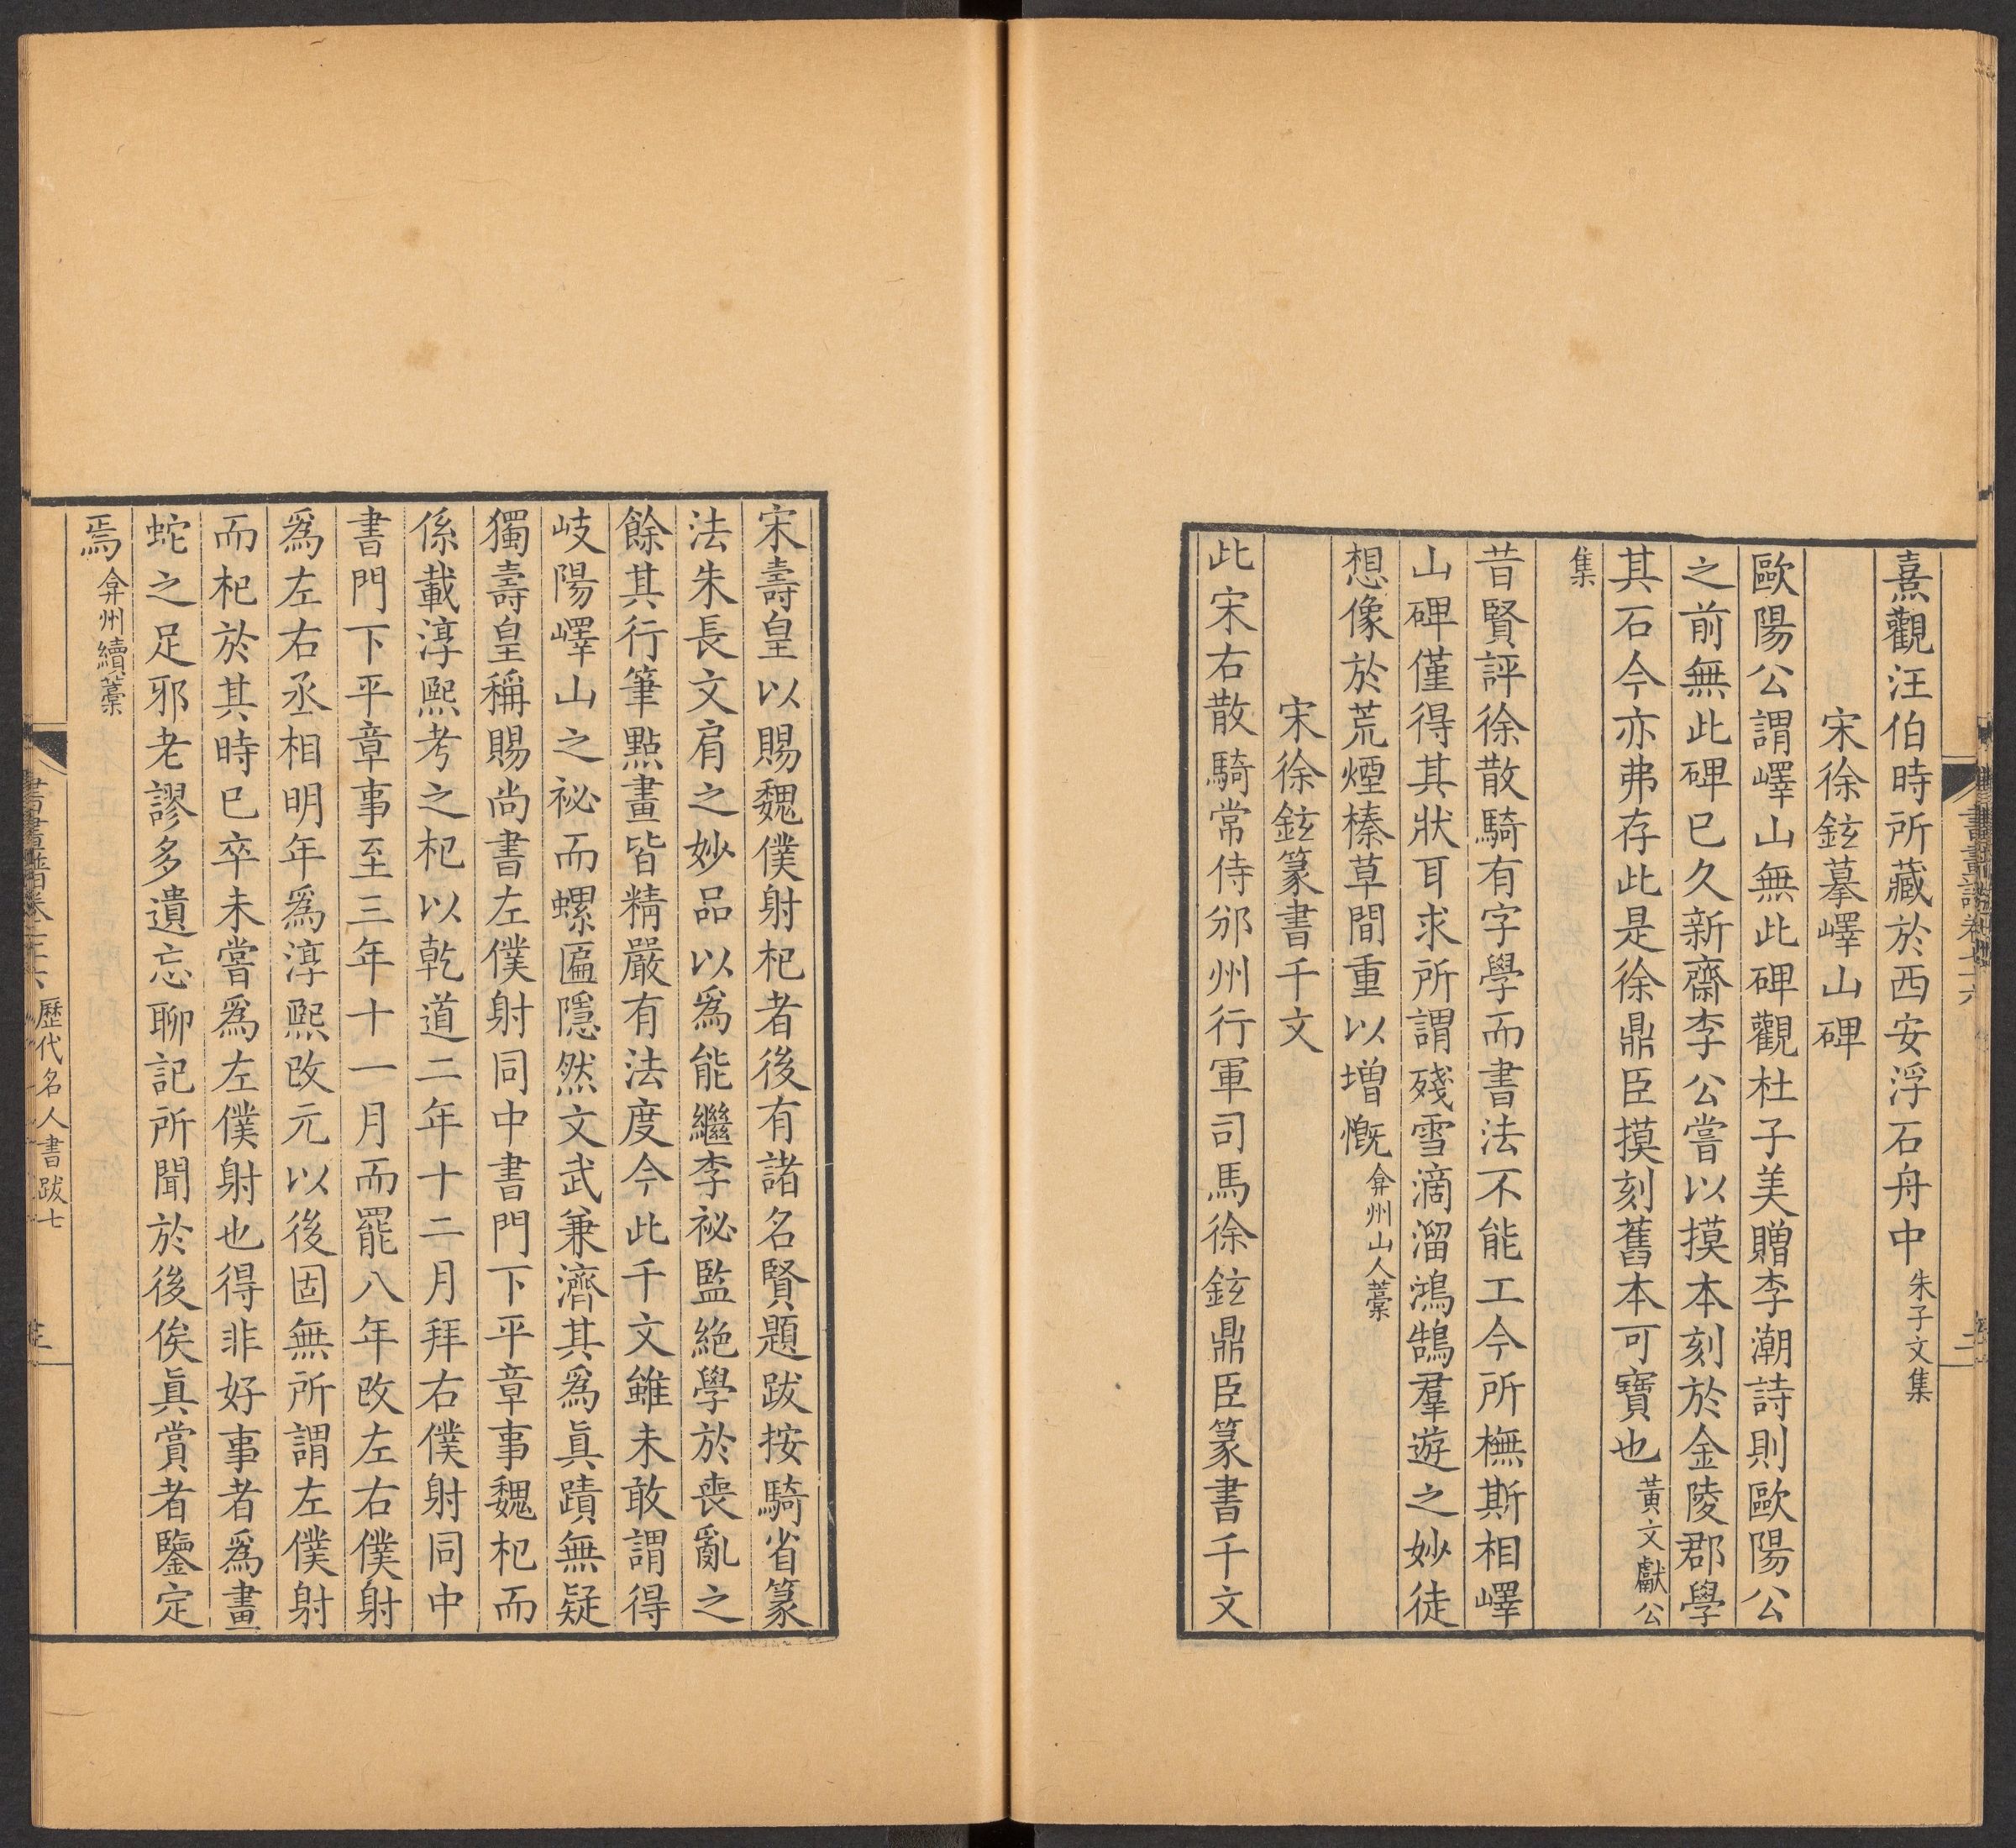 熹觀汪伯時所藏於西安浮石舟中朱子文集
宋徐鉉摹嶧山碑
歐陽公謂嶧山無此碑觀杜子美贈李潮詩則歐陽公
之前無此碑已久新齋李公嘗以摸本刻於金陵郡學
其石今亦弗存此是徐鼎臣摸刻舊本可寶也黃文獻公
集
昔賢評徐散騎有字學而書法不能工今所橅斯相嶧
山碑僅得其狀耳求所謂殘雪滴溜鴻鵠羣遊之妙徒
想像於荒煙榛草間重以增慨弇州山人藁
宋徐鉉篆書千文
此宋右散騎常侍邠州行軍司馬徐鉉鼎臣篆書千文
宋壽皇以賜魏僕射杞者後有諸名賢題跋按騎省篆
法朱長文肩之妙品以爲能繼李祕監絶學於喪亂之
餘其行筆點畫皆精嚴有法度今此千文雖未敢謂得
岐陽嶧山之祕而螺匾隱然文武兼濟其爲眞蹟無疑
獨壽皇稱賜尚書左僕射同中書門下平章事魏杞而
係載淳熙考之杞以乾道二年十二月拜右僕射同中
書門下平章事至三年十一月而罷八年改左右僕射
爲左右丞相明年爲淳熙改元以後固無所謂左僕射
而杞於其時已卒未嘗爲左僕射也得非好事者爲畫
蛇之足邪老謬多遺忘聊記所聞於後俟眞賞者鑒定
焉弇州續藁
歷代名人書跋七